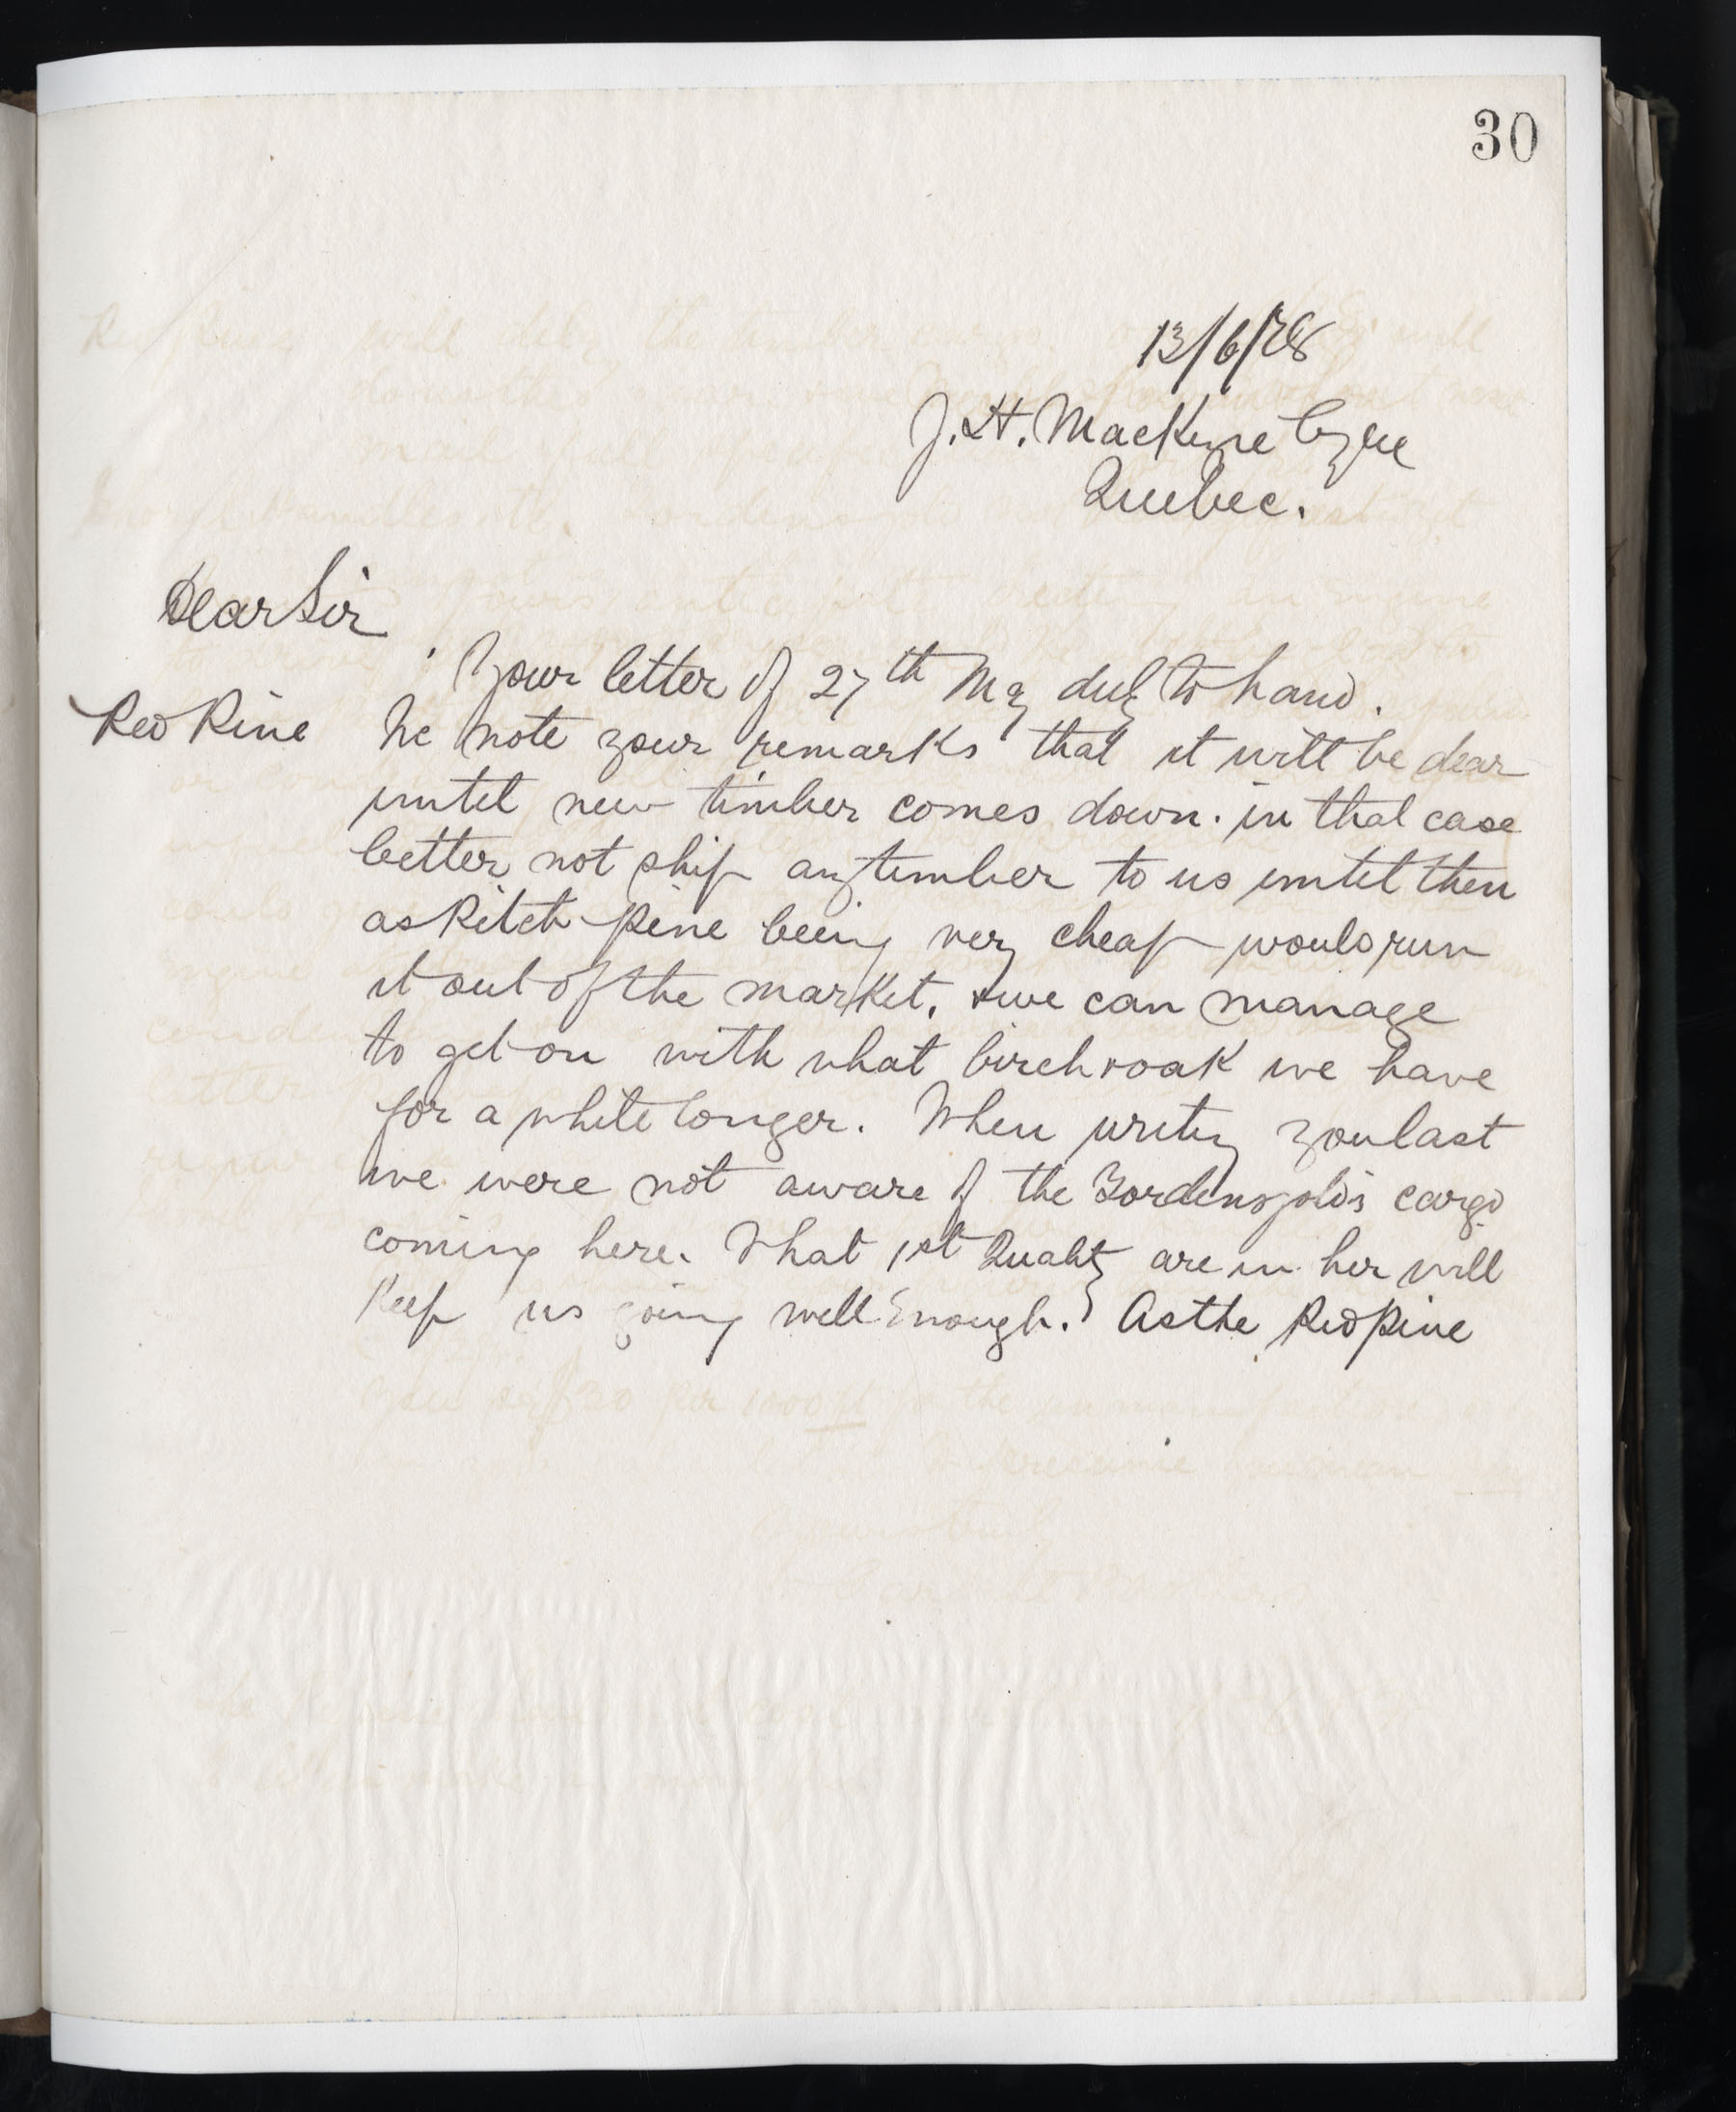 30
13/6/78
J. H. MacKene Esqre
Quebec.
Dear Sir
Your letter of 27th My duly to hand.
Red Pine We note your remarks that it will be dear
until new timber comes down. in that case
better not ship any timber to us until then
as Pitch pine being very cheap would run
it out of the market. & we can manage
to get on with what birch & oak we have
for a while longer. When writing you last
we were not aware of the cargo
coming here. What 1st Quality are in her will
keep us going well enough. As the Red pine